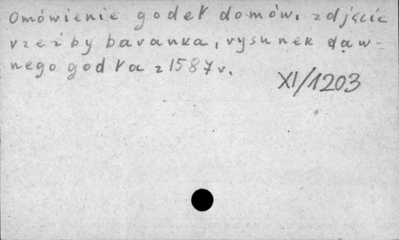 Omówienie godeł domów, zdjęcie
rzeźby baranka, rysunek daw-
nego godła z 1587 r.
XI/1203